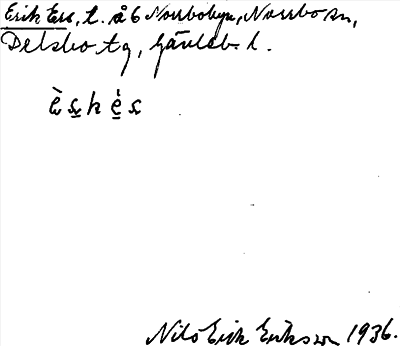 Erik Ers, t. å 6 Norrbobyn, Norrbo sn,
Delsbo tg, Gävleb. l.
Nils Erik Eriksson 1936.